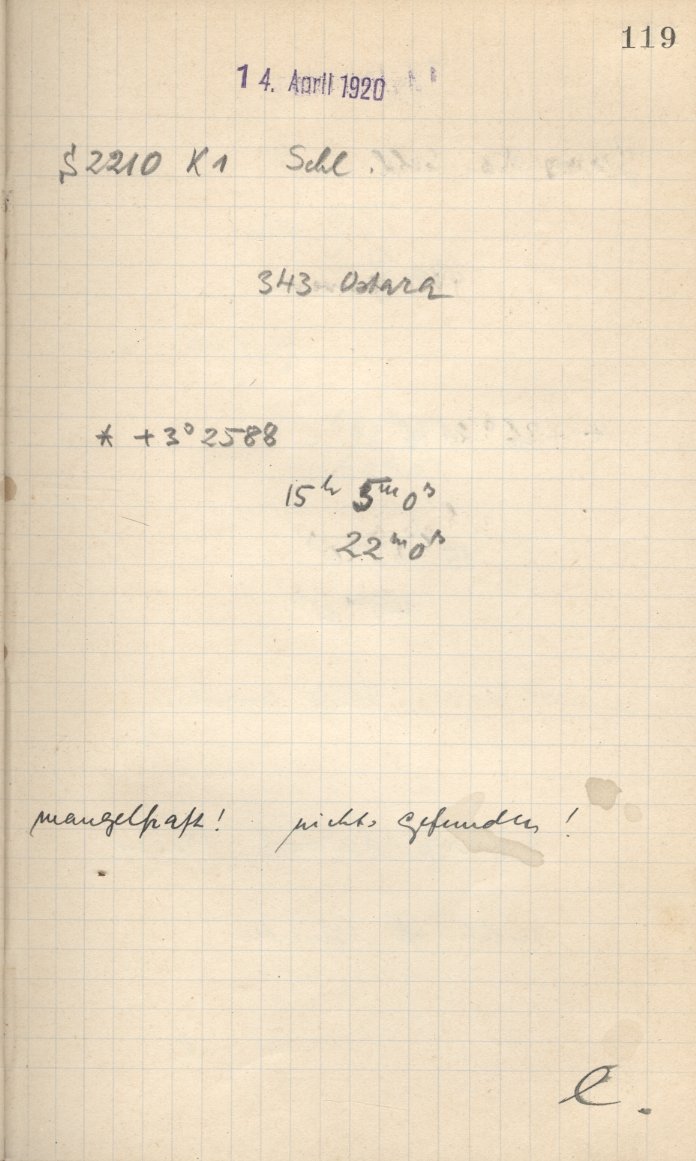 119
14. April 1920
§ 2210 K1 Schl.
343 Ostara
* +3° 2588
15ʰ 5ᵐ 0ˢ
22ᵐ 0ˢ
mangelhaft! nichts gefunden!